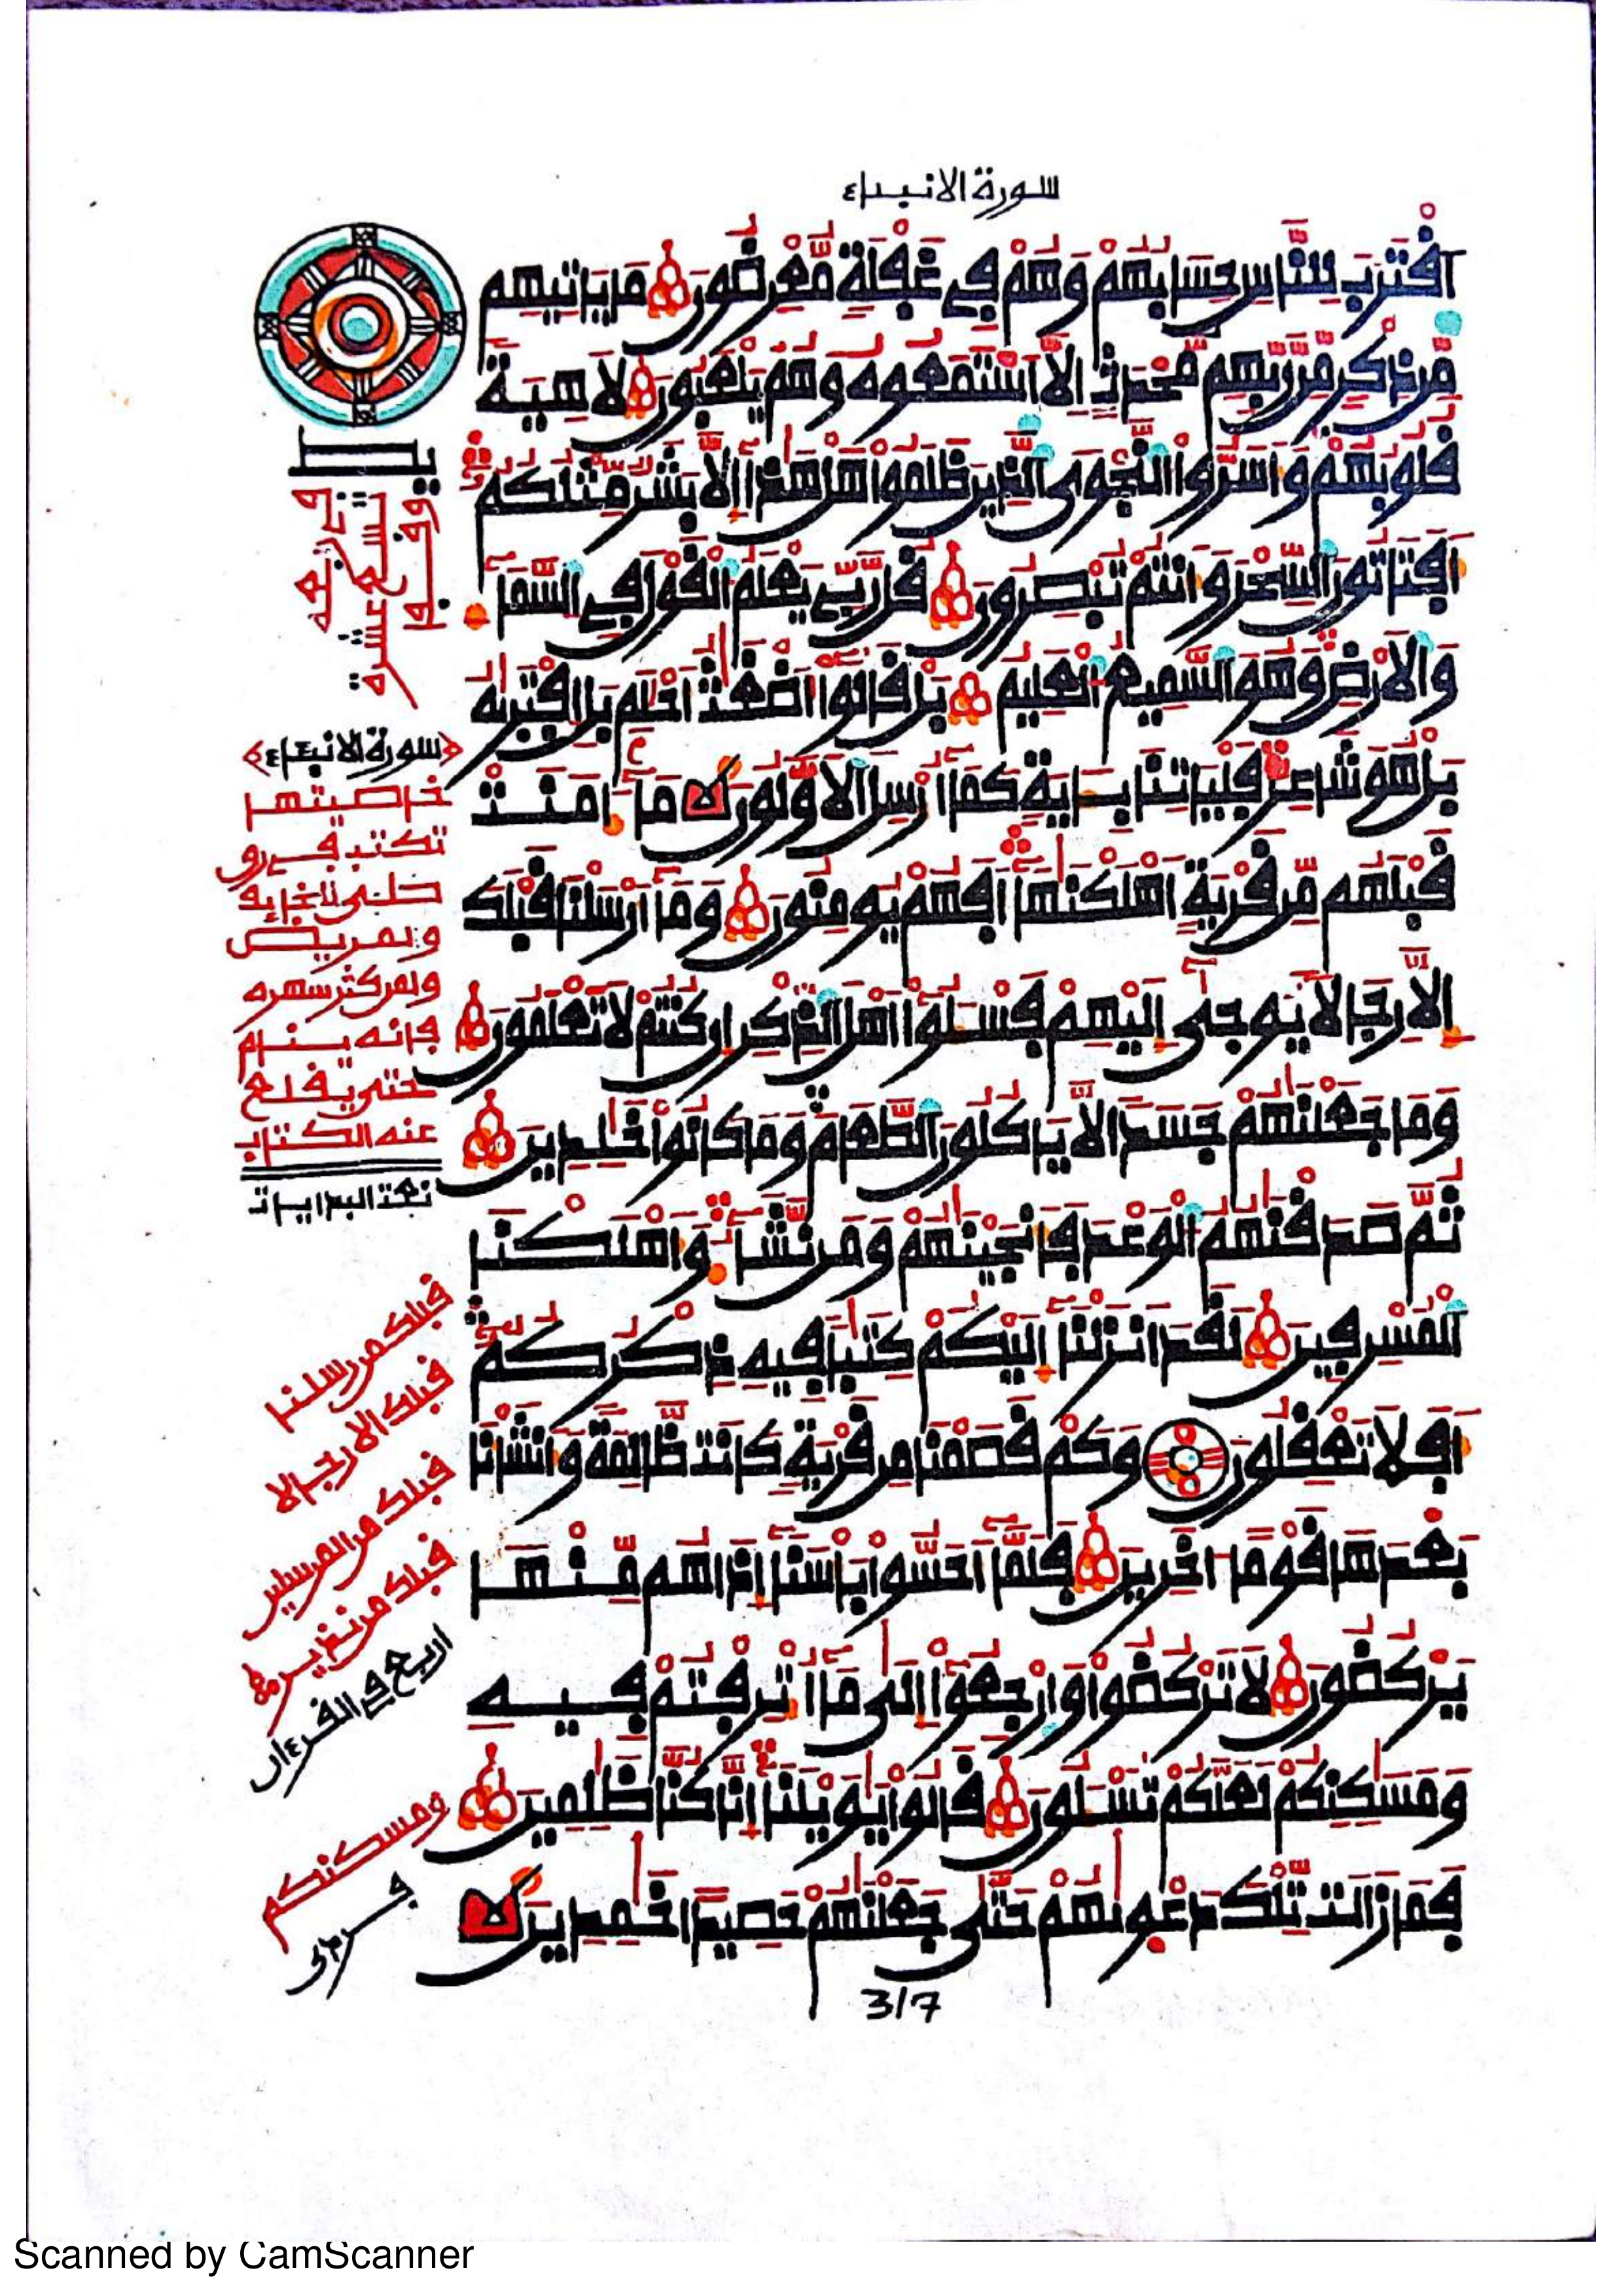 سورة الانبياء
اَقْتَرَبَ لِلنَّاسِ حِسَابُهُمْ وَهُمْ فِي غَفْلَةٍ مُّعْرِضُونَ مَا يَاتِيهِم
مِّن ذِكْرٍ مِّن رَّبِّهِم مُّحْدَثٍ اِلَّا اَسْتَمَعُوهُ وَهُمْ يَلْعَبُونَ لَاهِيَةً
قُلُوبُهُمْ وَأَسَرُّوا النَّجْوَى الذِينَ ظَلَمُوا هَلْ هَذَا إِلَّا بَشَرٌ مِّثْلُكُمْ
أَفَتَاتُونَ السِّحْرَ وَأَنتُمْ تُبْصِرُونَ قُل رَّبِّي يَعْلَمُ الْقَوْلَ فِي السَّمَاءِ
وَالْأَرْضِ وَهُوَ السَّمِيعُ الْعَلِيمُ بَلْ قَالُوا أَضْغَثُ أَحْلَمٍ بَلِ افْتَرَىهُ
بَلْ هُوَ شَاعِرٌ فَلْيَاتِنَا بِـَٔايَةٍ كَمَا أُرْسِلَ الْأَوَّلُونَ مَا ءَامَنَتْ
قَبْلَهُم مِّن قَرْيَةٍ أَهْلَكْنَهَا أَفَهُمْ يُومِنُونَ وَمَا أَرْسَلْنَا قَبْلَكَ
إِلَّا رِجَالًا يُوحَى إِلَيْهِمْ فَسْـَٔلُوا أَهْلَ الذِّكْرِ إِن كُنتُمْ لَا تَعْلَمُونَ
وَمَا جَعَلْنَهُمْ جَسَدًا لَّا يَاكُلُونَ الطَّعَامَ وَمَا كَانُوا خَلِدِينَ
ثُمَّ صَدَقْنَهُمُ الْوَعْدَ فَأَنجَيْنَهُمْ وَمَن نَّشَاءُ وَأَهْلَكْنَا
الْمُسْرِفِينَ لَقَدْ أَنزَلْنَا إِلَيْكُمْ كِتَبًا فِيهِ ذِكْرُكُمْ
أَفَلَا تَعْقِلُونَ وَكَمْ قَصَمْنَا مِن قَرْيَةٍ كَانَت ظَّالِمَةً وَأَنشَأْنَا
بَعْدَهَا قَوْمًا ءَاخَرِينَ فَلَمَّا أَحَسُّوا بَأْسَنَا إِذَا هُم مِّنْهَا
يَرْكُضُونَ لَا تَرْكُضُوا وَارْجِعُوا إِلَى مَا أُتْرِفْتُمْ فِيهِ
وَمَسَكِنِكُمْ لَعَلَّكُمْ تُسْـَٔلُونَ قَالُوا يَوَيْلَنَا إِنَّا كُنَّا ظَلِمِينَ
فَمَا زَالَت تِّلْكَ دَعْوَىهُمْ حَتَّى جَعَلْنَهُمْ حَصِيدًا خَمِدِينَ
تسع عشرة
سورة الانبياء
خاصيتها
تكتب في رق
ولمريض
ولمن كثر سهره
فانه ينام
حتى يقلع
عنه الكتاب
قبلك من رسلنا
قبلك الا رجالا
قبلك من المرسلين
قبلك من نذير
اربع في القرءان
ومسكنكم
فردى
317
Scanned by CamScanner